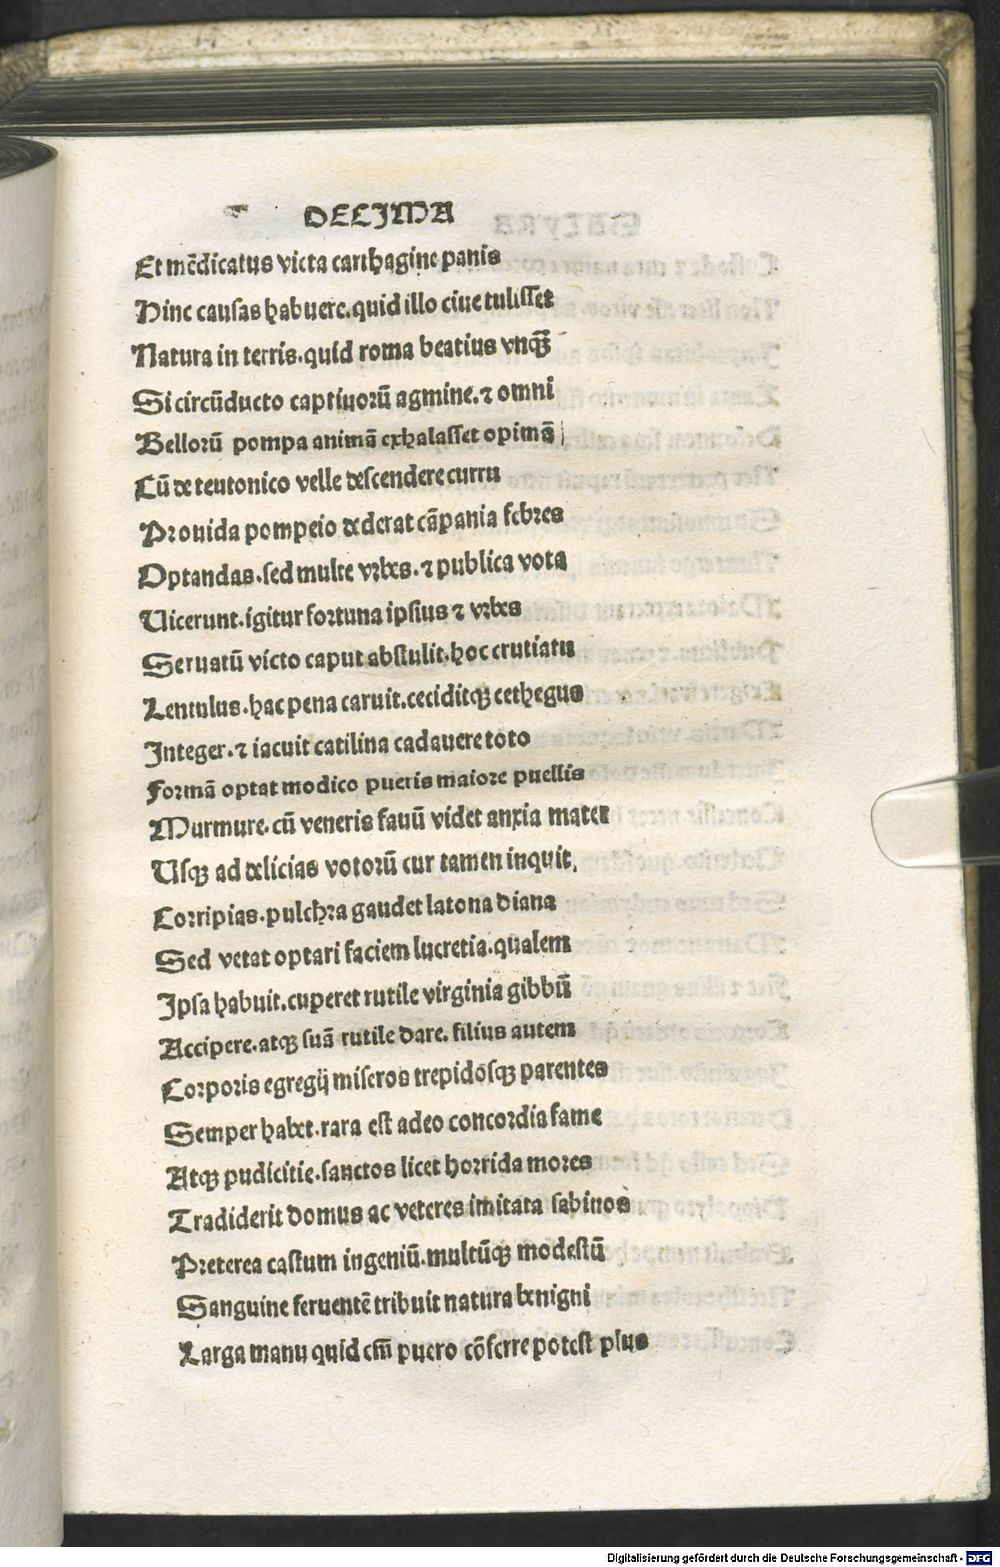 DECIMA
Et mēdicatus victa carthagine panis
Hinc causas habuere. quid illo ciue tulisset
Natura in terris. quid roma beatius vnqꝫ̄
Si circūducto captiuorū agmine. ⁊ omni
Bellorū pompa animā exhalasset opimā
Cū de teutonico velle descendere curru
Prouida pompeio dederat cāpania febres
Optandas. sed multe vrbes. ⁊ publica vota
Uicerunt. igitur fortuna ipsius ⁊ vrbes
Seruatū victo caput abstulit. hoc crutiatu
Lentulus. hac pena caruit. ceciditqꝫ cethegus
Integer. ⁊ iacuit catilina cadauere toto
Formā optat modico pueris maiore puellis
Murmure. cū veneris fauū videt anxia mater
Usqꝫ ad delicias votorū cur tamen inquit,
Corripias. pulchra gaudet latona diana
Sed vetat optari faciem lucretia. qualem
Ipsa habuit. cuperet rutile virginia gibbū
Accipere. atqꝫ suā rutile dare. filius autem
Corporis egregij miseros trepidosqꝫ parentes
Semper habet. rara est adeo concordia fame
Atqꝫ pudicitie. sanctos licet horrida mores
Tradiderit domus ac veteres imitata sabinos
Preterea castum ingeniū. multūqꝫ modestū
Sanguine feruentē tribuit natura benigni
Larga manu quid em̄ puero cōferre potest plus
Digitalisierung gefördert durch die Deutsche Forschungsgemeinschaft - DFG